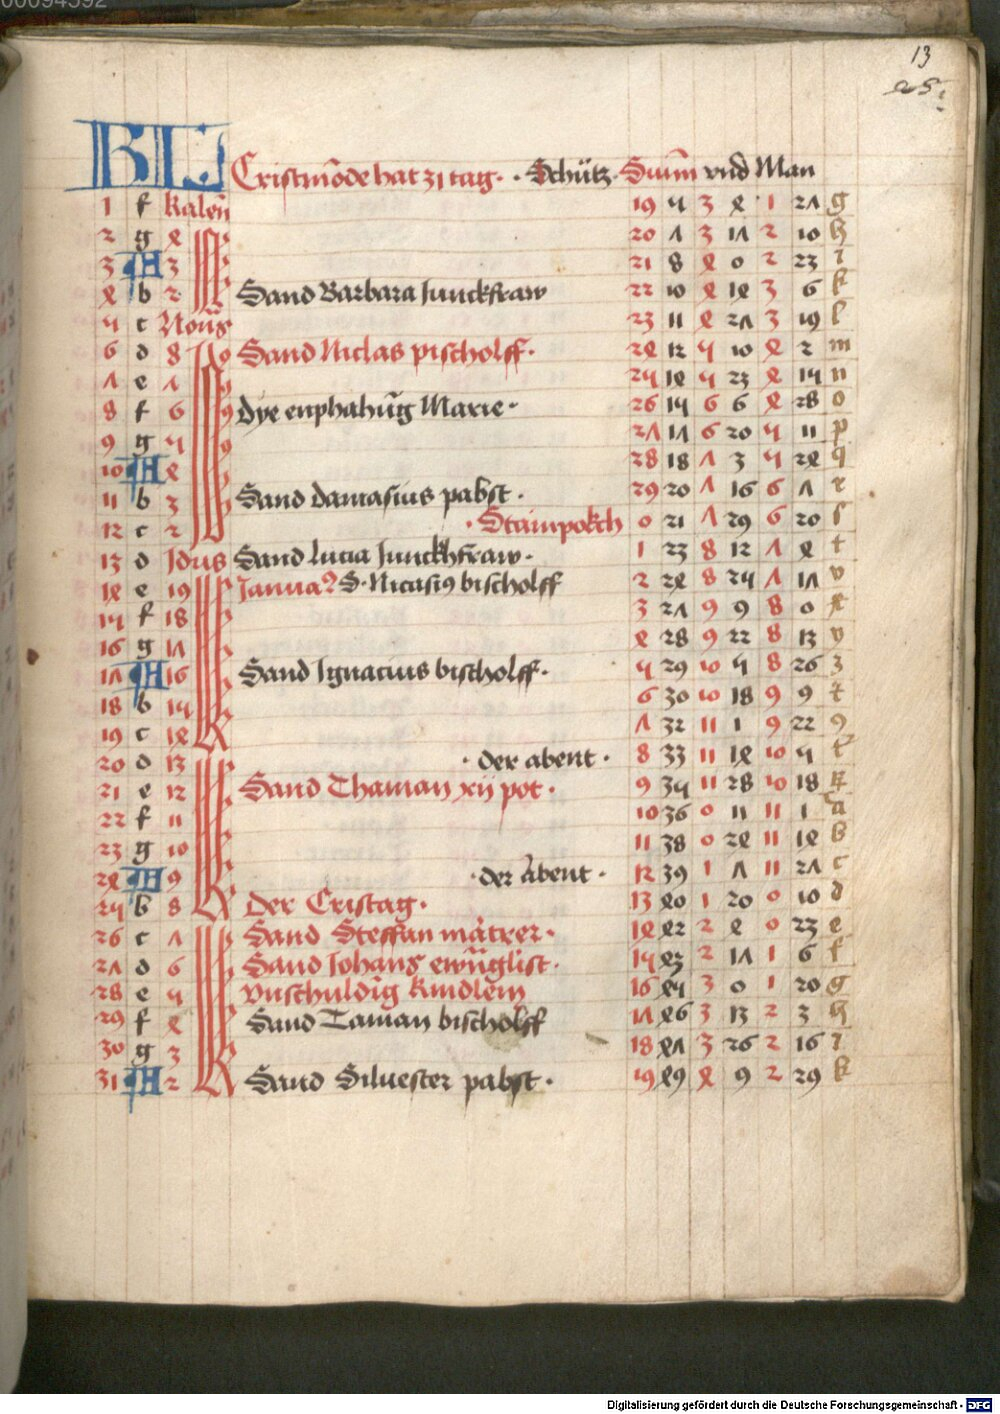 00094592
13
KL Cristmōde hat 31 tag. · Schütz · Suñm vnd Man
1 f Kaleñ 19 5 3 4 1 27 g
2 g 4 20 7 3 17 2 10 h
3 A 3 21 8 4 0 2 23 i
4 b 2 Sand Barbara Junckfraw 22 10 4 14 3 6 k
5 c Noñs 23 11 4 27 3 19 l
6 d 8 Sand Niclas pischolff · 24 12 5 10 4 2 m
7 e 7 25 14 5 23 4 15 n
8 f 6 dye enphahūg Marie · 26 15 6 6 4 28 o
9 g 5 27 17 6 20 5 11 p
10 A 4 28 18 7 3 5 24 q
11 b 3 Sand damasius pabst · 29 20 7 16 6 7 r
12 c 2 · Stainpokch 0 21 7 29 6 20 s
13 d Idus Sand Lucia Junckhfraw · 1 23 8 12 7 4 t
14 e 19 Januaꝝ S · Nicasiꝰ bischolff 2 24 8 25 7 17 v
15 f 18 3 27 9 9 8 0 x
16 g 17 4 28 9 22 8 13 y
17 A 16 Sand Ignacius bischolff · 5 29 10 5 8 26 z
18 b 15 6 30 10 18 9 9
19 c 14 7 32 11 1 9 22 9
20 d 13 · der abent · 8 33 11 14 10 5
21 e 12 Sand Thaman xij pot · 9 35 11 28 10 18
22 f 11 10 36 0 11 11 1 a
23 g 10 11 38 0 24 11 14 b
24 A 9 · der Abent · 12 39 1 7 11 27 c
25 b 8 Der Cristag · 13 40 1 20 0 10 d
26 c 7 Sand Steffan mātrer · 14 42 2 4 0 23 e
27 d 6 Sand Johans ewāglist · 15 43 2 17 1 6 f
28 e 5 Vnschuldig kindlein 16 45 3 0 1 20 g
29 f 4 Sand Taman bischolff 17 46 3 13 2 3 h
30 g 3 18 47 3 26 2 16 i
31 A 2 Sand Siluester pabst · 19 49 4 9 2 29 k
Digitalisierung gefördert durch die Deutsche Forschungsgemeinschaft - DFG